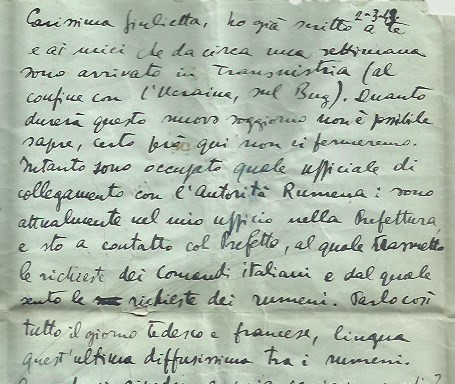 2-3-43
Carissima Giulietta, ho già scritto a te
e ai miei che da circa una settimana
sono arrivato in Transnistria (al
confine con l'Ucraina, sul Bug). Quanto
durerà questo nuovo soggiorno non è possibile
sapere, certo però qui non ci fermeremo.
Intanto sono occupato quale ufficiale di
collegamento con l'Autorità Rumena: sono
attualmente nel mio ufficio nella Prefettura,
e sto a contatto col Prefetto, al quale trasmetto
le richieste dei Comandi italiani e dal quale
sento le richieste dei rumeni. Parlo così
tutto il giorno tedesco e francese, lingua
quest'ultima diffusissima tra i rumeni.